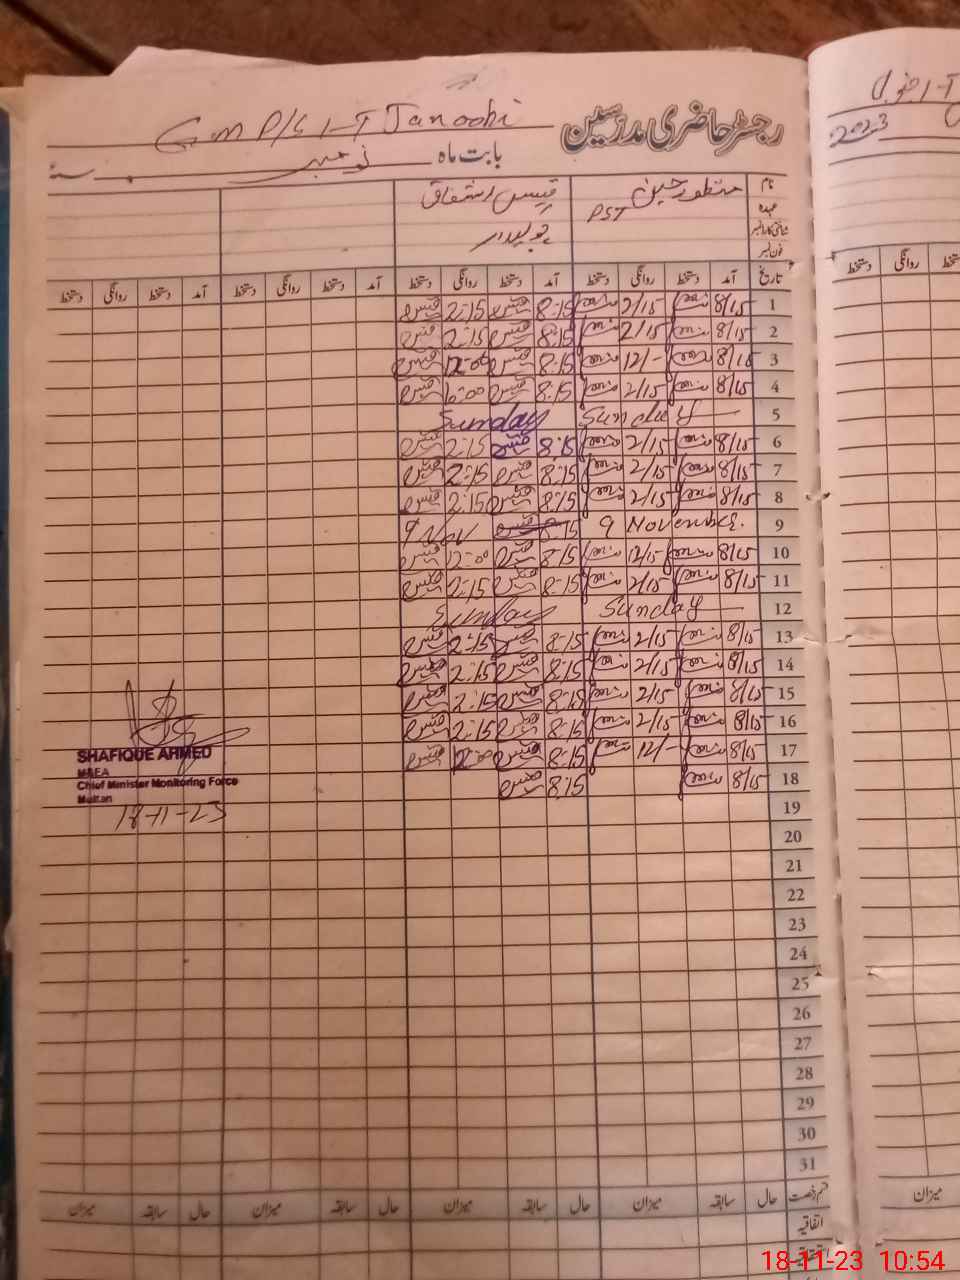 G.M P/S 1-T Janoobi رجسٹر حاضری مدرسین
بابت ماہ نومبر سنہ
نام منظور حسین قیس اشتفاق
عہدہ PST چوکیدار
شناختی کارڈ نمبر
فون نمبر
تاریخ آمد دستخط روانگی دستخط آمد دستخط روانگی دستخط آمد دستخط روانگی دستخط آمد دستخط روانگی دستخط
1 8/15 2/15 8:15 قیس 2:15 قیس
2 8/15 2/15 8:15 قیس 2:15 قیس
3 8/15 12/- 8:15 قیس 12:00 قیس
4 8/15 2/15 8:15 قیس قیس
5 Sunday Sunday
6 8/15 2/15 8:15 قیس 2:15 قیس
7 8/15 2/15 8:15 قیس 2:15 قیس
8 8/15 2/15 8:15 قیس 2:15 قیس
9 9 November. 8:15 قیس 9 Nov
10 8/15 12/15 8:15 قیس 12:00 قیس
11 8/15 2/15 8:15 قیس 2:15 قیس
12 Sunday Sunday
13 8/15 2/15 8:15 قیس 2:15 قیس
14 8/15 2/15 8:15 قیس 2:15 قیس
15 8/15 2/15 8:15 قیس 2:15 قیس
16 8/15 2/15 8:15 قیس 2:15 قیس
17 8/15 12/- 8:15 قیس قیس
18 8/15 8:15 قیس
19
20
21
22
23
24
25
26
27
28
29
30
31
SHAFIQUE AHMED
MAEA
Chief Minister Monitoring Force
Multan
18-11-23
قسم رخصت حال سابقہ میزان حال سابقہ میزان حال سابقہ میزان حال سابقہ میزان
اتفاقیہ
2023
دستخط روانگی دستخط
میزان
18-11-23 10:54